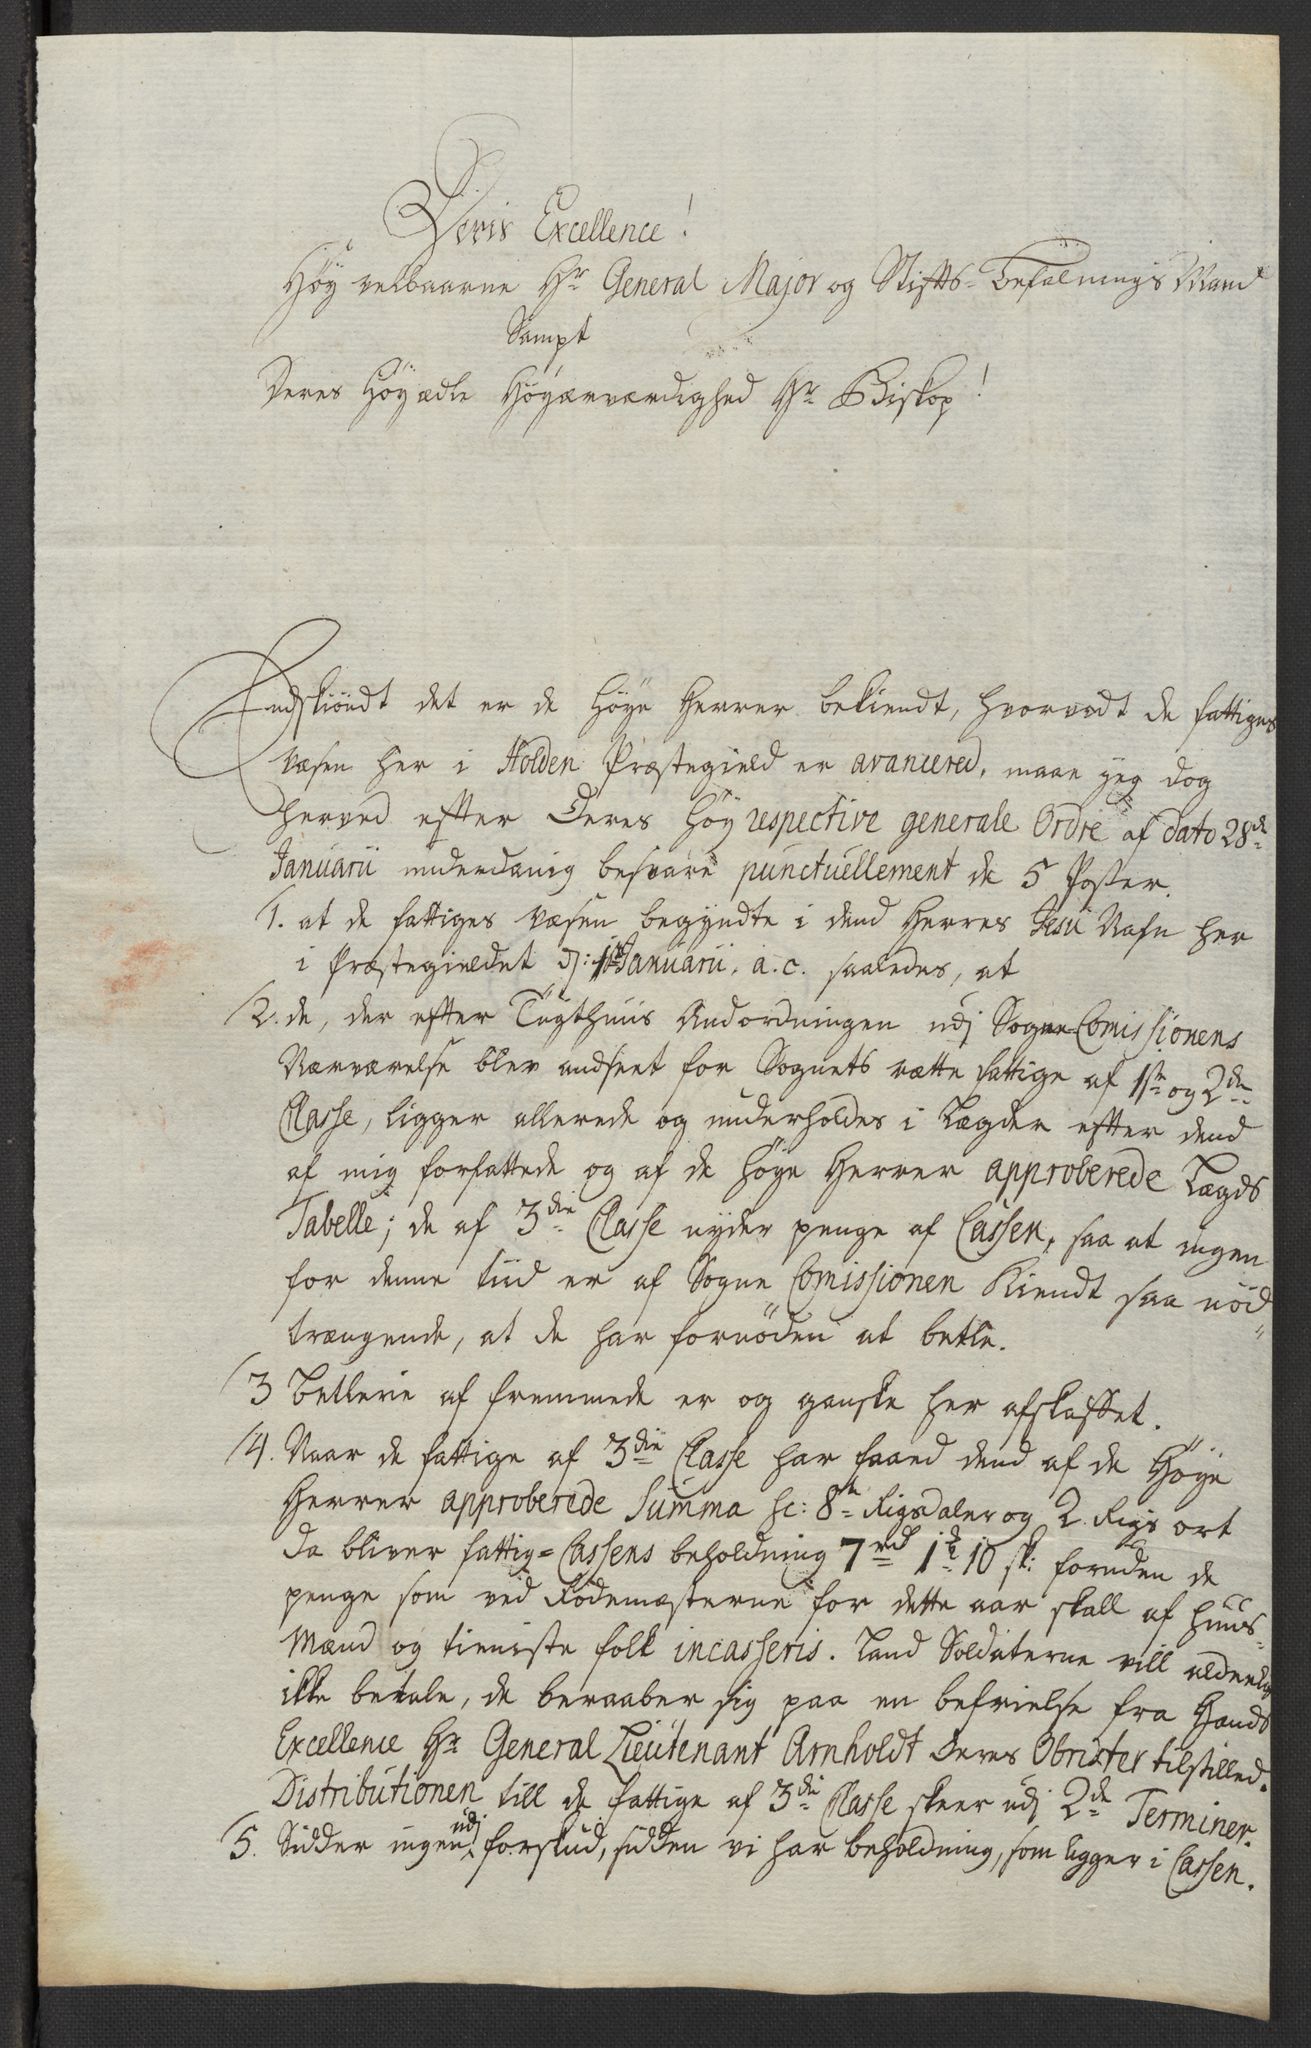 Deris Excellence!
Høy velbaarne Hr General Major og Stifts-Befalnings Mand
Sampt
Deres Høyædle Høyærværdighed Hr Biskop!
Endskiöndt det er de Höye Herrer bekiendt, hvorvidt de fattiges
væsen her i Holden Præstegield er avancered, maae jeg dog
herved efter Deres Høy respective generale Ordre af dato 28de
Januarii underdanig besvare punctuellement de 5 Poster.
1. at de fattiges væsen begyndte i dend Herres Jesu Nafn her
i Præstegieldet d: 1ste Januarii. a.c. saaledes, at
2. de, der efter Tugthuus Andordningen udj Sogne-Comissionens
Nærværelse blev andseet for Sognets rætte fattige af 1ste og 2den
Classe, ligger allerede og underholdes i Lægder efter dend
af mig forfattede og af de høye Herrer approberede Lægds
Tabelle; de af 3die Classe nyder penge af Cassen, saa at ingen
for denne tiid er af Sogne Comissionen kiendt saa nöd-
trængende, at de har fornöden at betle.
3 Betlerie af fremmede er og ganske her afskaffet.
4. Naar de fattige af 3die Classe har faaed dend af de Höye
Herrer approberede Summa sc: 8te Rigsdaler og 2 Rigs ort
da bliver fattig-Cassens beholdning 7rd 1 10 sk: foruden de
penge som ved Rodemesterne for dette aar skall af huus-
Mænd og tieniste folk incasseris. Land Soldaterne vill aldeelis
ikke betale, de beraaber sig paa en befrielse fra Hands
Excellence Hr General Lieutenant Arnholdt Deres Obrister tilstilled.
Distributionen till de fattige af 3die Classe skeer udj 2de Terminer.
5. Sidder ingen udj forskud, siden vi har beholdning, som ligger i Cassen.